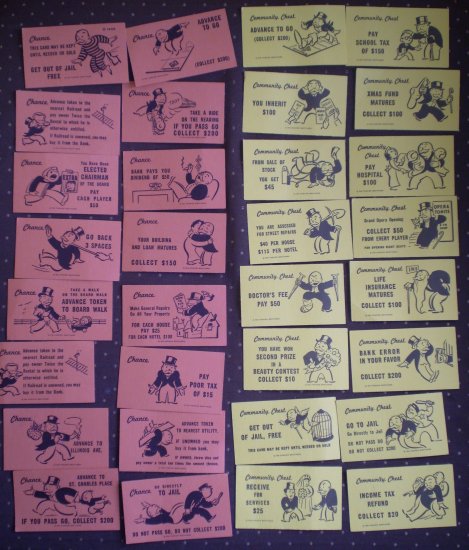 Chance
THIS CARD MAY BE KEPT
UNTIL NEEDED OR SOLD
GET OUT OF JAIL
FREE
Chance
ADVANCE
TO GO
(COLLECT $200)
Community Chest
ADVANCE TO GO
(COLLECT $200)
Community Chest
PAY
SCHOOL TAX
OF $150
Chance
Advance token to the
nearest Railroad and
pay owner Twice the
Rental to which he is
otherwise entitled.
If Railroad is unowned, you may
buy it from the Bank.
Chance
TAKE A RIDE
ON THE READING
IF YOU PASS GO
COLLECT $200
Community Chest
YOU INHERIT
$100
Community Chest
XMAS FUND
MATURES
COLLECT $100
Chance
You Have Been
ELECTED
CHAIRMAN
OF THE BOARD
PAY
EACH PLAYER
$50
Chance
BANK PAYS YOU
DIVIDEND OF $50
Community Chest
FROM SALE OF
STOCK
YOU GET
$45
Community Chest
PAY
HOSPITAL
$100
Chance
GO BACK
3 SPACES
Chance
YOUR BUILDING
AND LOAN MATURES
COLLECT $150
Community Chest
YOU ARE ASSESSED
FOR STREET REPAIRS
$40 PER HOUSE
$115 PER HOTEL
Community Chest
OPERA
TONITE
Grand Opera Opening
COLLECT $50
FROM EVERY PLAYER
FOR OPENING NIGHT SEATS
Chance
TAKE A WALK
ON THE BOARD WALK
ADVANCE TOKEN
TO BOARD WALK
Chance
Make General Repairs
On All Your Property
FOR EACH HOUSE
PAY $25
FOR EACH HOTEL $100
Community Chest
DOCTOR'S FEE
PAY $50
Community Chest
LIFE
INSURANCE
MATURES
COLLECT $100
Chance
Advance token to the
nearest Railroad and
pay owner Twice the
Rental to which he is
otherwise entitled.
If Railroad is unowned, you may
buy it from the Bank.
Chance
PAY
POOR TAX
OF $15
Community Chest
YOU HAVE WON
SECOND PRIZE
IN A
BEAUTY CONTEST
COLLECT $10
Community Chest
BANK ERROR
IN YOUR FAVOR
COLLECT $200
Chance
ADVANCE TO
ILLINOIS AVE.
Chance
ADVANCE TOKEN
TO NEAREST UTILITY.
IF UNOWNED you may
buy it from the Bank.
Community Chest
GET OUT
OF JAIL, FREE
THIS CARD MAY BE KEPT UNTIL NEEDED OR SOLD
Community Chest
GO TO JAIL
Go Directly to Jail
DO NOT PASS GO
DO NOT COLLECT $200
Chance
ADVANCE TO
ST. CHARLES PLACE
IF YOU PASS GO, COLLECT $200
Chance
GO DIRECTLY
TO JAIL
DO NOT PASS GO, DO NOT COLLECT $200
Community Chest
RECEIVE
FOR
SERVICES
$25
Community Chest
INCOME TAX
REFUND
COLLECT $20